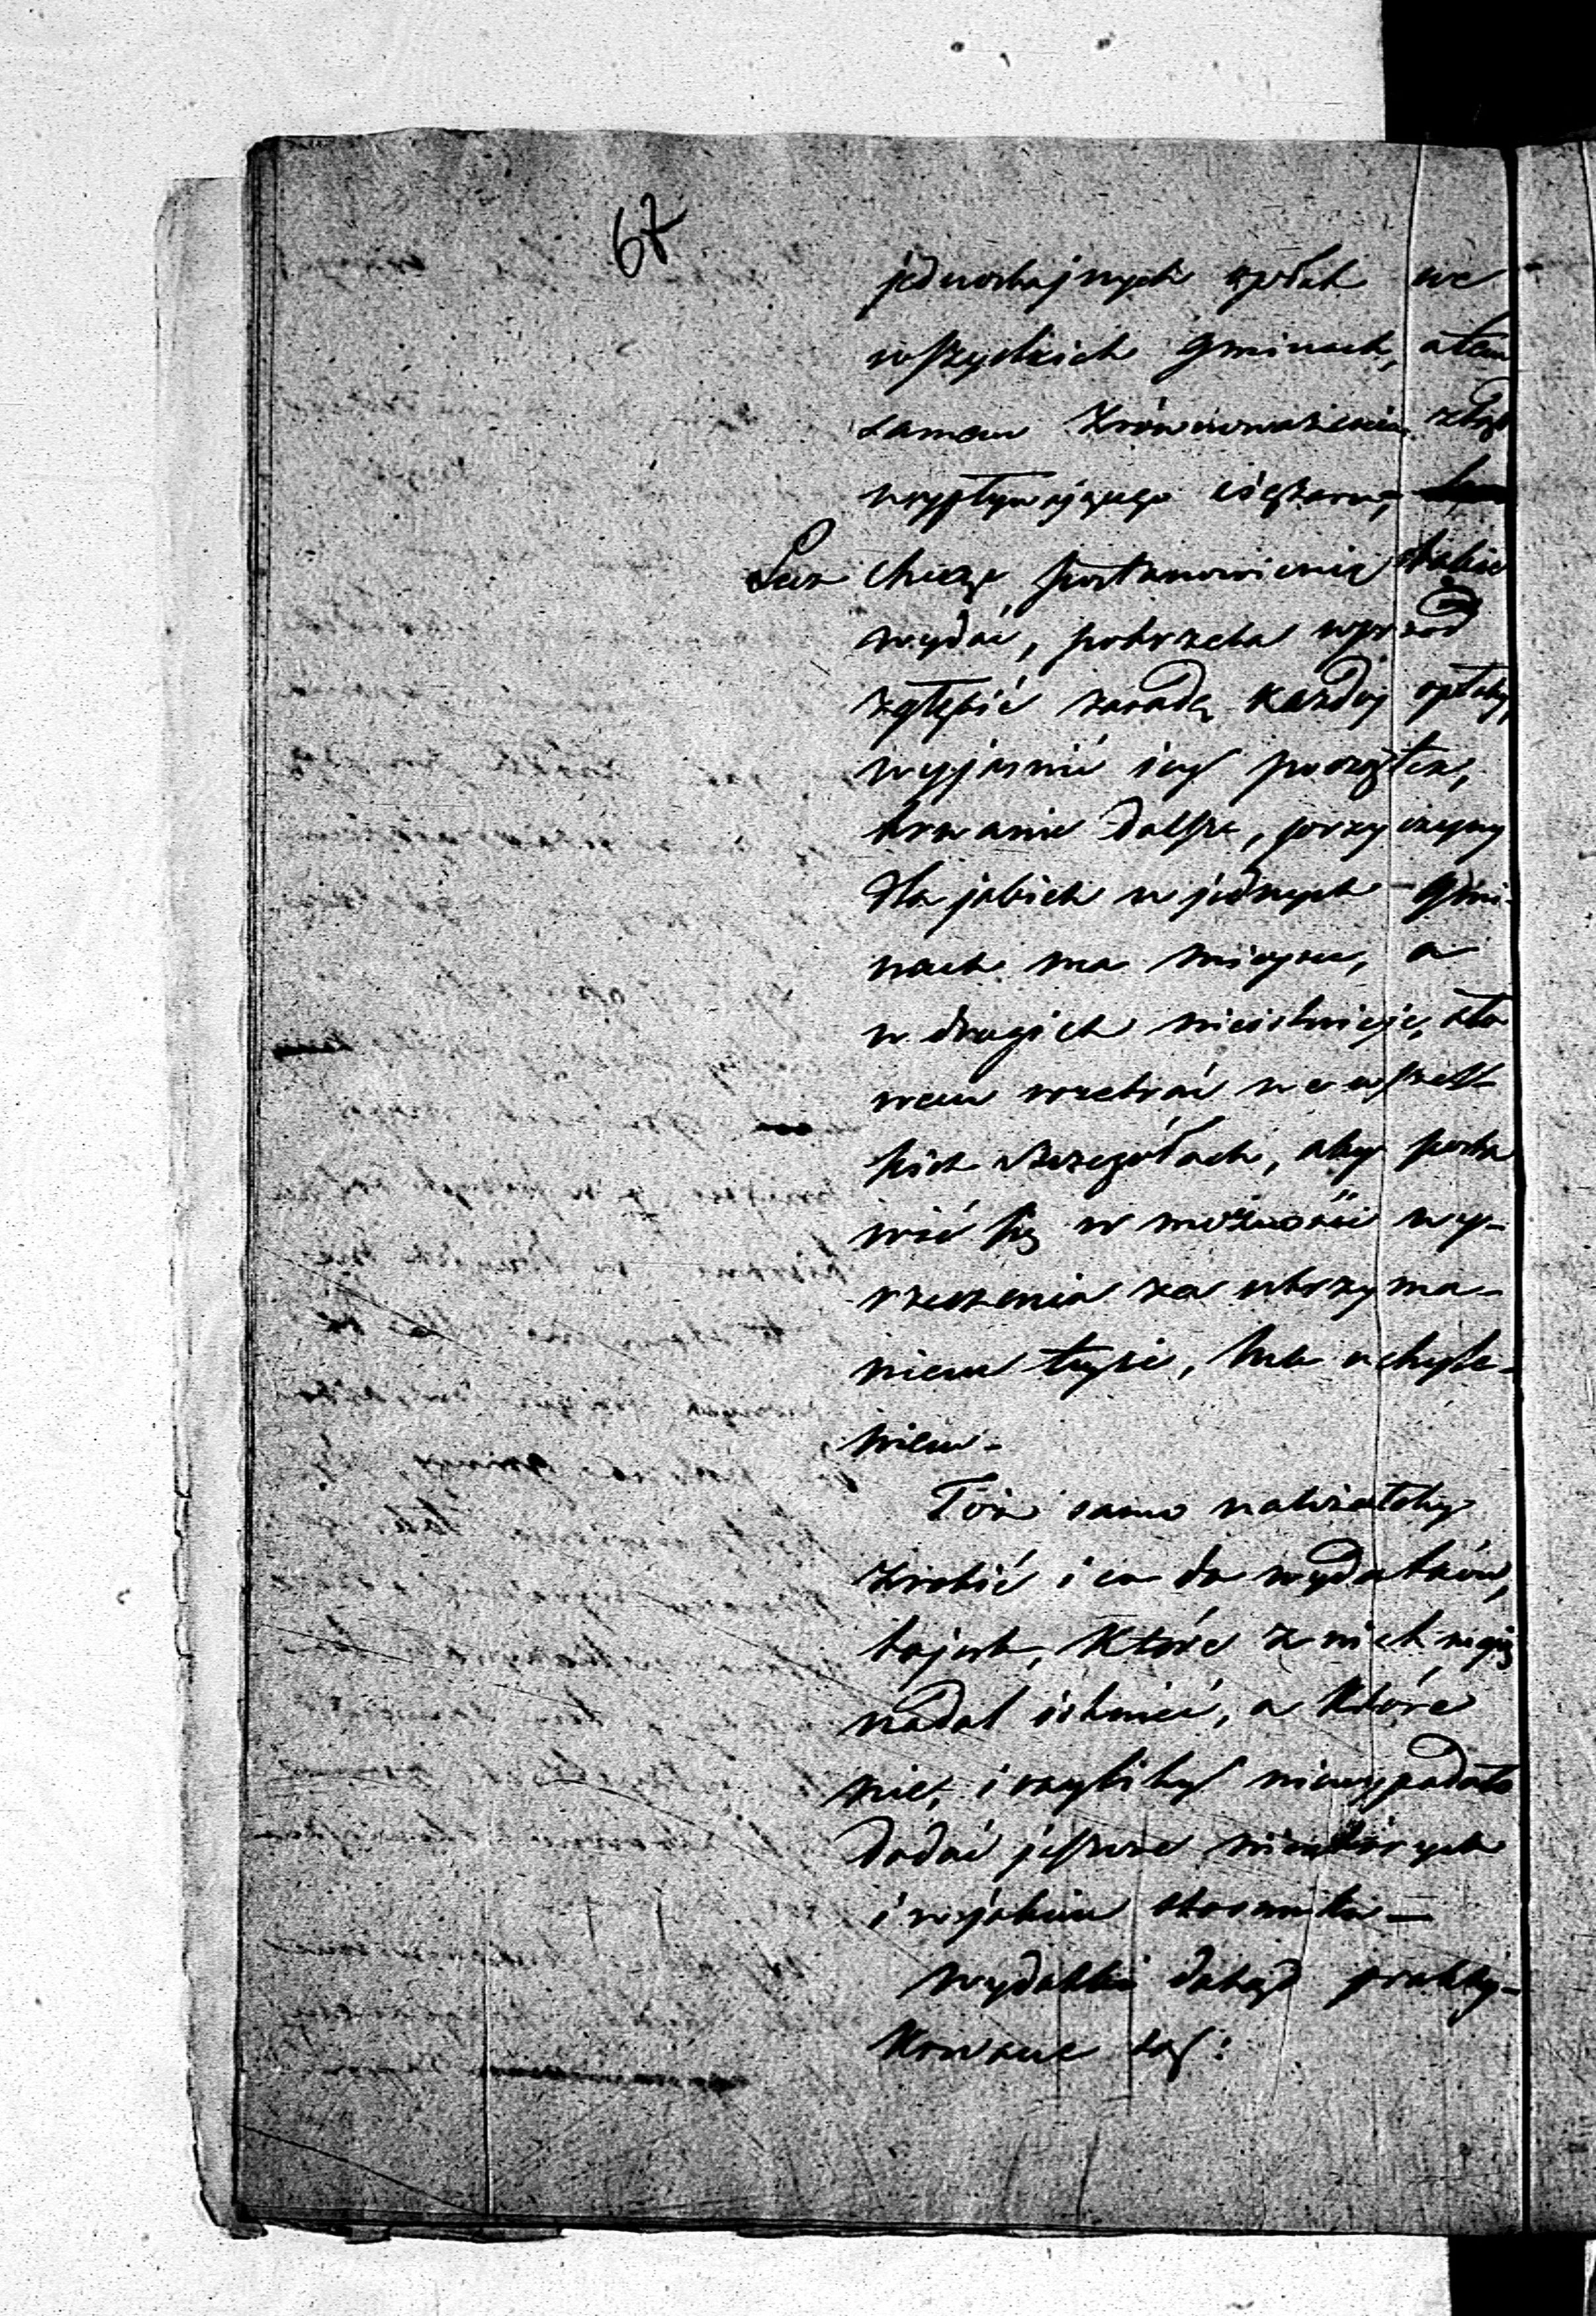 67
jednostajnych opłat we
wszystkich gminach, a tem
samem zrównoważenia ztąd
wypływającego ciężaru,
Lecz chcąc postanowienie takie
wydać, potrzeba wprzód
zgłębić zasadę każdej opłaty,
wyjaśnić iey początek,
trwanie dalsze, przyczyny
dla jakich w jednych gmi-
nach ma mieysce, a
w drugich nieistnieje, sło
wem rozebrać we wszel-
kich szczegółach, aby posta
wić się w możności wy-
rzeczenia za utrzyma-
niem teyże, lub uchyle-
niem.
Toż samo należałoby
zrobić i co do wydatków,
to jest, które z nich mają
nadal istnieć, a które
nie, i czyliby niewypadało
dodać jeszcze niektórych
i w jakim stosunku —
Wydatki dotąd prakty-
kowane są: